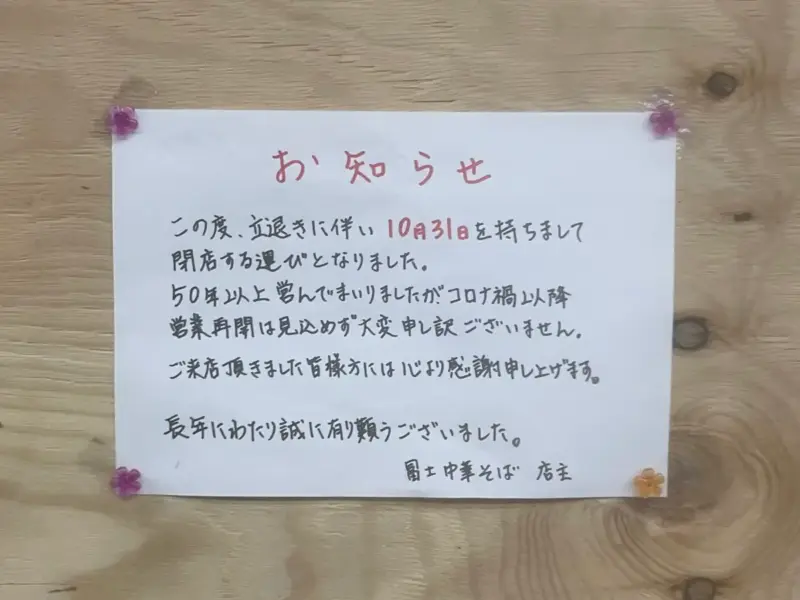 お知らせ
この度、立退きに伴い10月31日を持ちまして
閉店する運びとなりました。
50年以上営んでまいりましたがコロナ禍以降
営業再開は見込めず大変申し訳ございません。
ご来店頂きました皆様方には心より感謝申し上げます。
長年にわたり誠に有り難うございました。
冨士中華そば 店主